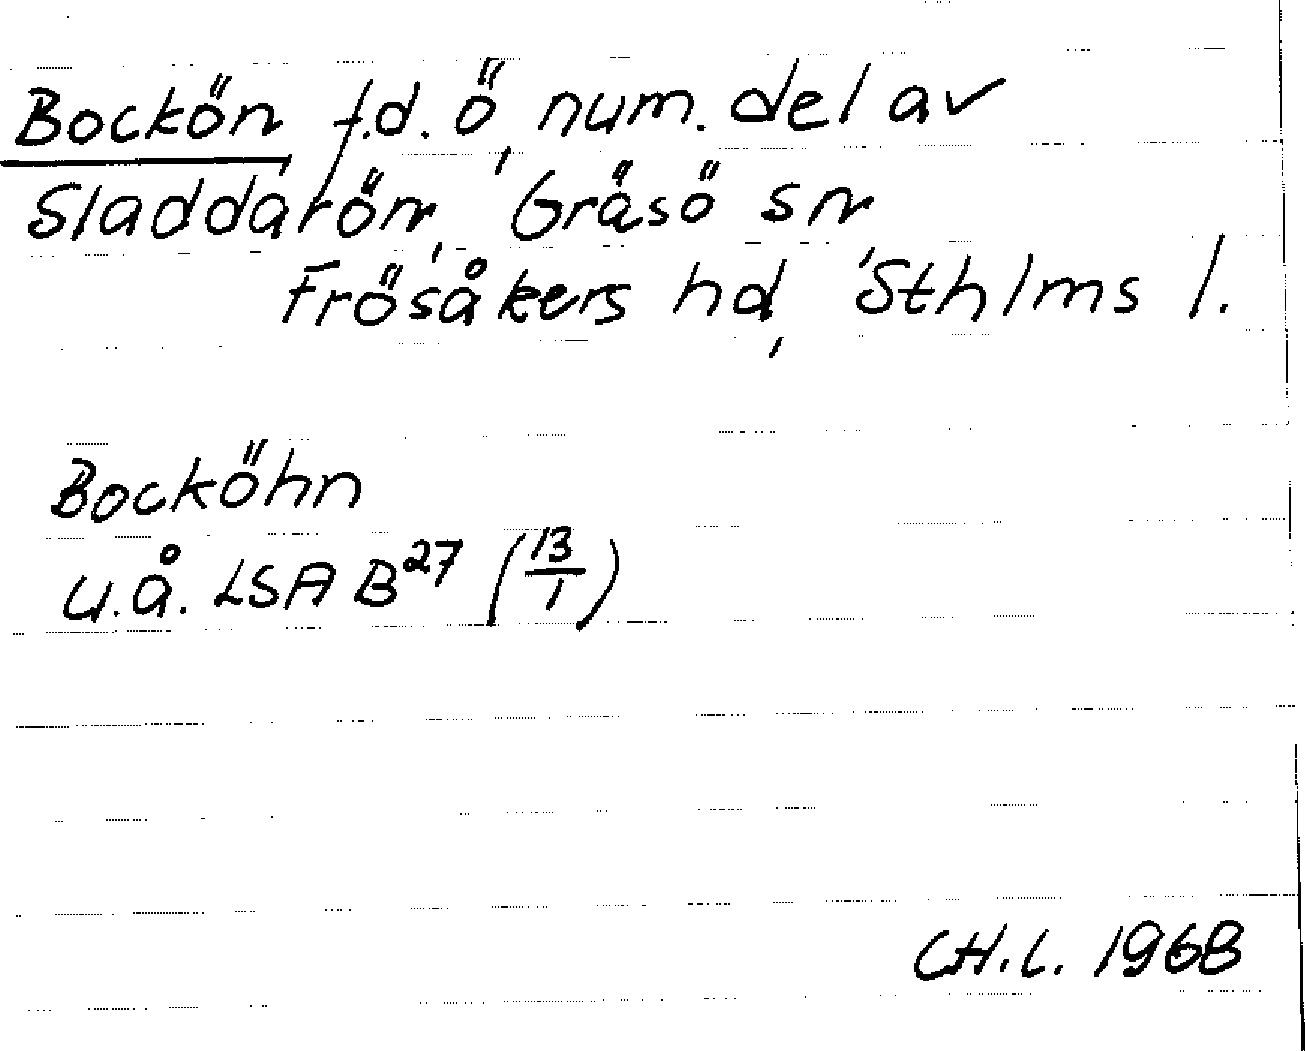 Bockön f.d. ö, num. del av
Sladdarön, Gräsö sn
Frösåkers hd, Sthlms l.
Bocköhn
u.å. LSA B²⁷ (13/1)
CH.L. 1968